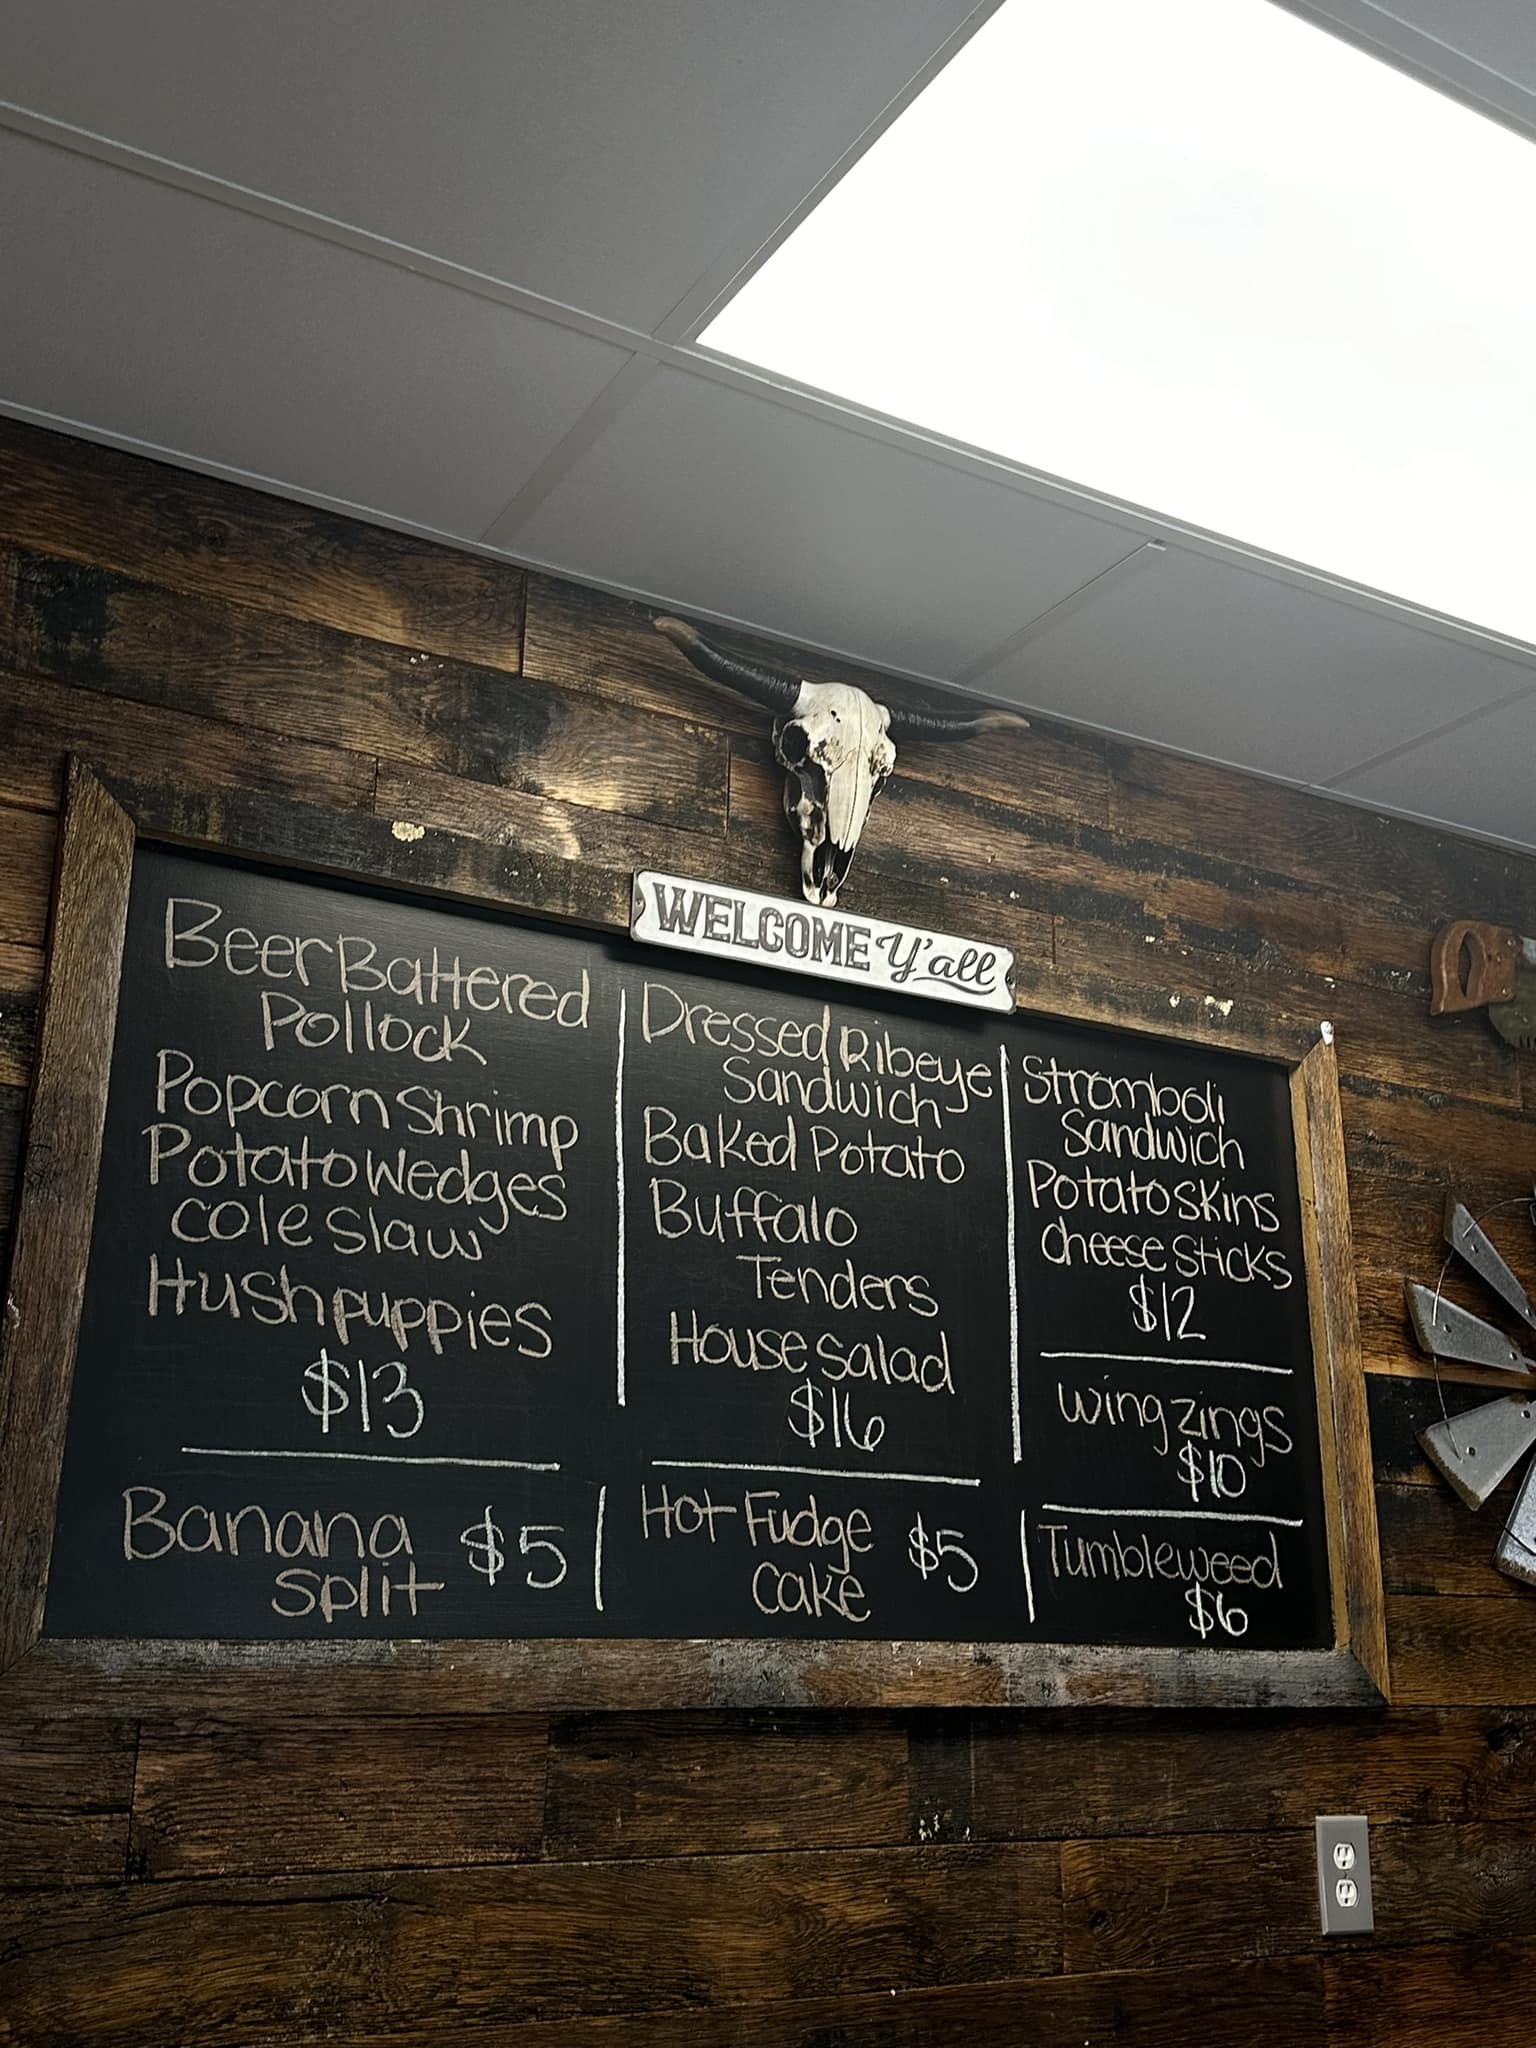 WELCOME Y'all
Beer Battered
Pollock
Popcorn Shrimp
Potato Wedges
Cole Slaw
Hushpuppies
$13
Dressed Ribeye
Sandwich
Baked Potato
Buffalo
Tenders
House Salad
$16
Stromboli
Sandwich
Potato Skins
Cheese Sticks
$12
Wing Zings
$10
Banana $5
Split
Hot Fudge $5
Cake
Tumbleweed
$6